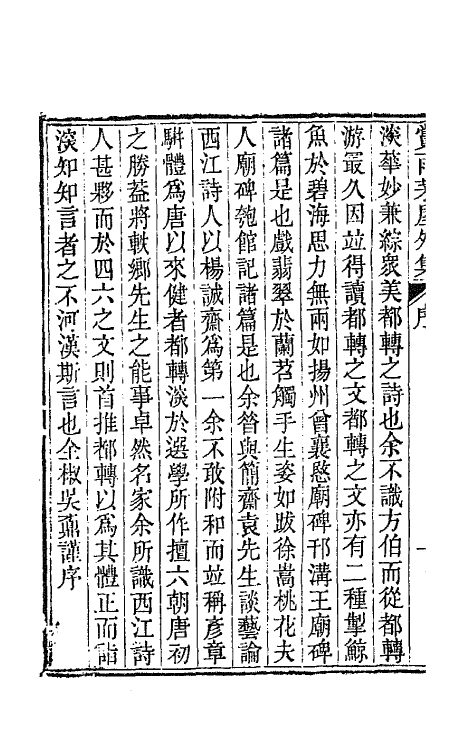 賞雨茅屋外集 序 一
淡華妙兼綜衆美都轉之詩也余不識方伯而從都轉
游最久因竝得讀都轉之文都轉之文亦有二種掣鯨
魚於碧海思力無兩如揚州曾襄愍廟碑邗溝王廟碑
諸篇是也戲翡翠於蘭苕觸手生姿如跋徐嵩桃花夫
人廟碑匏館記諸篇是也余曾與簡齋袁先生談藝論
西江詩人以楊誠齋爲第一余不敢附和而竝稱彥章
駢體爲唐以來健者都轉淡於選學所作擅六朝唐初
之勝葢將軼鄉先生之能事卓然名家余所識西江詩
人甚夥而於四六之文則首推都轉以爲其體正而詣
淡知知言者之不河漢斯言也全椒吳鼒謹序